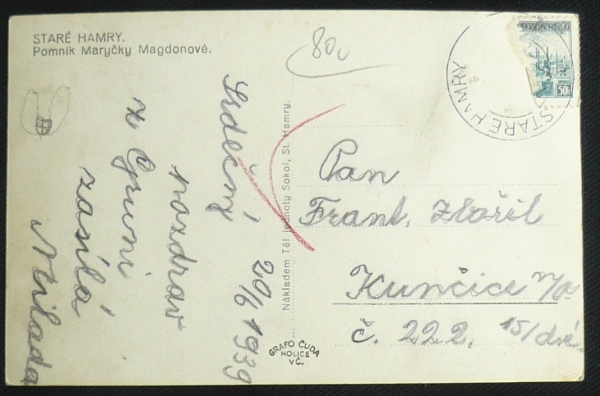 STARÉ HAMRY.
Pomník Maryčky Magdonové.
800
50h
STARÉ HAMRY
Srdečný
pozdrav
z Gruni
zasílá
Milada
20/6 1939
Nákladem Těl. Jednoty Sokol, St. Hamry.
Pan
Frant.
Kunčice n/O
č. 222.
GRAFO ČUDA
HOLICE
V Č.